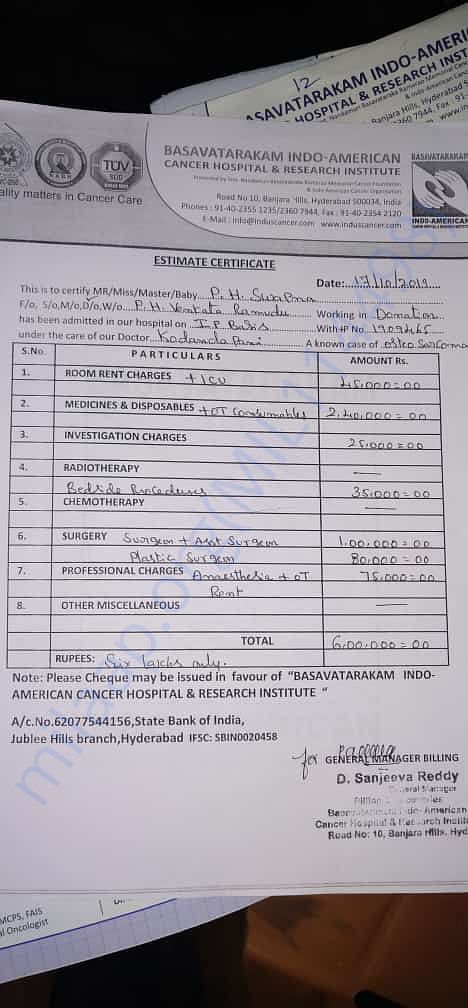 12
BASAVATARAKAM INDO-AMERI
HOSPITAL & RESEARCH INSTI
Banjara Hills, Hyderabad
TUV
SUD
ality matters in Cancer Care
BASAVATARAKAM INDO-AMERICAN
CANCER HOSPITAL & RESEARCH INSTITUTE
Road No 10, Banjara Hills, Hyderabad 500034, India
Phones : 91-40-2355 1235/2360 7944, Fax : 91-40-2354 2120
E-Mail : info@induscancer.com www.induscancer.com
BASAVATARAKAM
INDO-AMERICAN
ESTIMATE CERTIFICATE
Date: 17/10/2019
This is to certify MR/Miss/Master/Baby P. H. Swapna
F/o, S/o,M/o,D/o,W/o P. H. Venkata Ramudu Working in Donation
has been admitted in our hospital on I.P Basis With IP No. 1909465
under the care of our Doctor Kodanda Pani A known case of osteo Sarcoma
S.No. PARTICULARS AMOUNT Rs.
1. ROOM RENT CHARGES + ICU 45,000=00
2. MEDICINES & DISPOSABLES + OT Consumables 2,40,000=00
3. INVESTIGATION CHARGES 25,000=00
4. RADIOTHERAPY —
Bedside Procedures 35,000=00
5. CHEMOTHERAPY —
6. SURGERY Surgeon + Asst Surgeon 1,00,000=00
Plastic Surgeon 80,000=00
7. PROFESSIONAL CHARGES Anaesthesia + OT 75,000=00
Rent
8. OTHER MISCELLANEOUS —
TOTAL 6,00,000=00
RUPEES: Six lakhs only.
Note: Please Cheque may be issued in favour of “BASAVATARAKAM INDO-
AMERICAN CANCER HOSPITAL & RESEARCH INSTITUTE “
A/c.No.62077544156,State Bank of India,
Jublee Hills branch,Hyderabad IFSC: SBIN0020458
for GENERAL MANAGER BILLING
D. Sanjeeva Reddy
General Manager
Cancer Hospital & Research Instit
Road No: 10, Banjara Hills, Hyd
MCPS, FAIS
al Oncologist